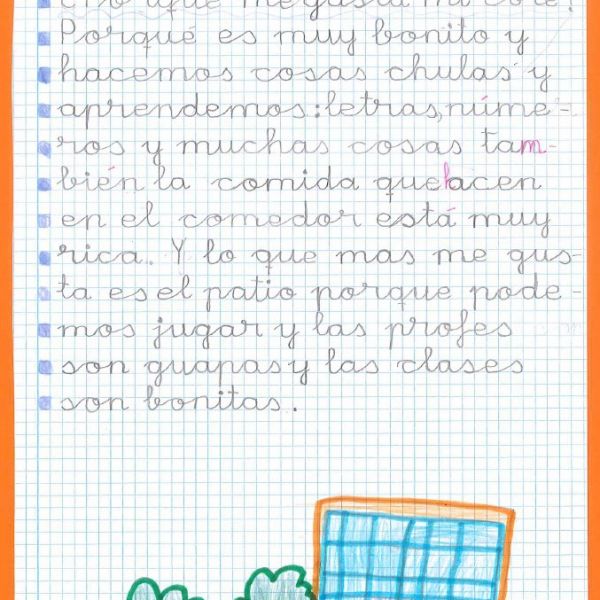 me gusta mi cole?
Porqué es muy bonito y
hacemos cosas chulas y
aprendemos: letras, núme-
ros y muchas cosas tam-
bién la comida que hacen
en el comedor está muy
rica. Y lo que mas me gus-
ta es el patio porque pode-
mos jugar y las profes
son guapas y las clases
son bonitas.